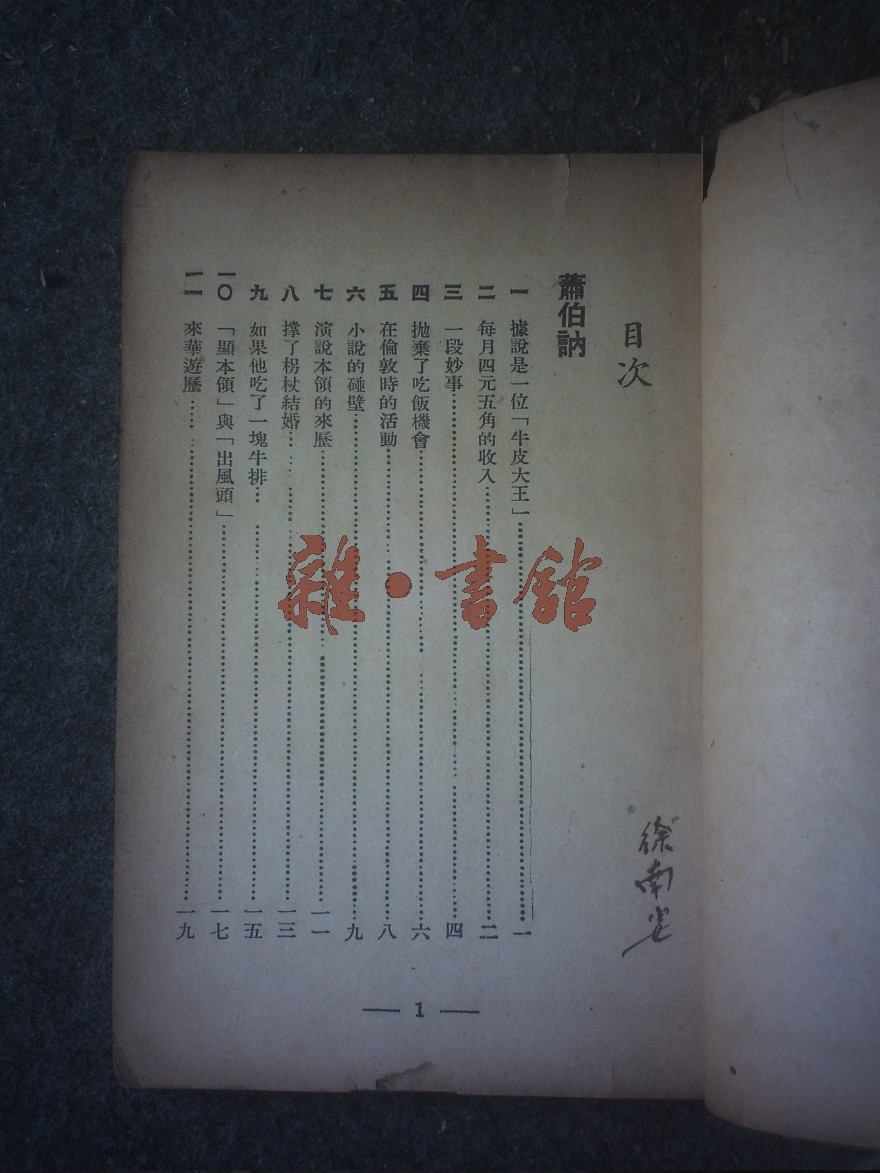 目次
蕭伯訥
一 據說是一位「牛皮大王」……一
二 每月四元五角的收入……二
三 一段妙事……四
四 拋棄了吃飯機會……六
五 在倫敦時的活動……八
六 小說的碰壁……九
七 演說本領的來歷……一一
八 撑了柺杖結婚……一三
九 如果他吃了一塊牛排……一五
一〇 「顯本領」與「出風頭」……一七
一一 來華遊歷……一九
— 1 —
徐南
雜·書館